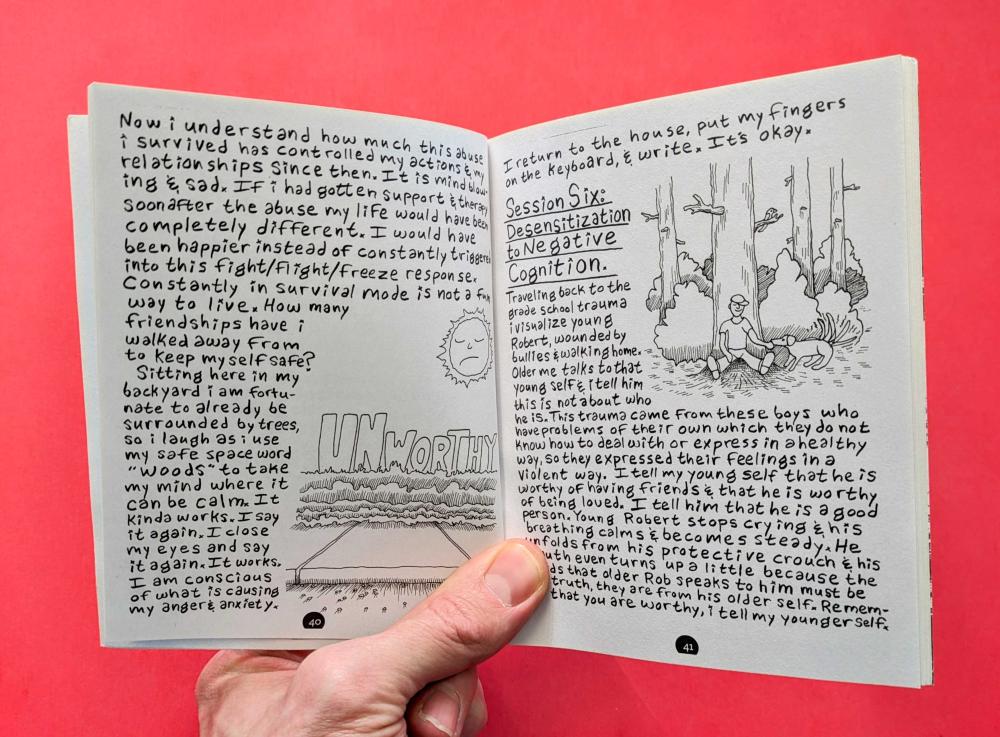 Now i understand how much this abuse
i survived has controlled my actions & my
relationships since then. It is mind blow-
ing & sad. If i had gotten support & therapy
soon after the abuse my life would have been
completely different. I would have
been happier instead of constantly triggered
into this fight/flight/freeze response.
Constantly in survival mode is not a fun
way to live. How many
friendships have i
walked away from
to keep myself safe?
Sitting here in my
backyard i am fortu-
nate to already be
surrounded by trees,
so i laugh as i use
my safe space word
"woods" to take
my mind where it
can be calm. It
kinda works. I say
it again. I close
my eyes and say
it again. It works.
I am conscious
of what is causing
my anger & anxiety.
UNWORTHY
40
I return to the house, put my fingers
on the keyboard, & write. It's okay.
Session Six:
Desensitization
to Negative
Cognition.
Traveling back to the
grade school trauma
i visualize young
Robert, wounded by
bullies & walking home.
Older me talks to that
young self & i tell him
this is not about who
he is. This trauma came from these boys who
have problems of their own which they do not
know how to deal with or express in a healthy
way, so they expressed their feelings in a
violent way. I tell my young self that he is
worthy of having friends & that he is worthy
of being loved. I tell him that he is a good
person. Young Robert stops crying & his
breathing calms & becomes steady. He
unfolds from his protective crouch & his
mouth even turns up a little because the
that older Rob speaks to him must be
truth, they are from his older self. Remem-
that you are worthy, i tell my younger self.
41